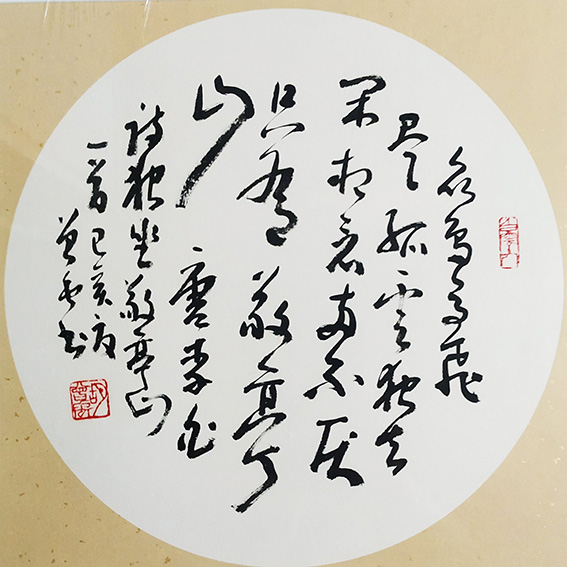 众鸟高飞
尽孤云独去
闲相看两不厌
只有敬亭
山 唐李白
诗独坐敬亭山
一首己亥
书